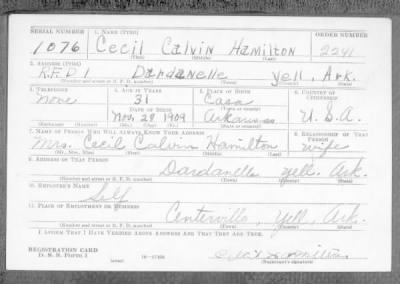 SERIAL NUMBER 1. NAME (Print) ORDER NUMBER
1076 Cecil Calvin Hamilton 2241
(First) (Middle) (Last)
2. ADDRESS (Print)
R.F.D 1 Dardanelle Yell, Ark.
(Number and street or R. F. D. number) (Town) (County) (State)
3. TELEPHONE 4. AGE IN YEARS 5. PLACE OF BIRTH 6. COUNTRY OF CITIZENSHIP
None 31 Casa
DATE OF BIRTH (Town or county)
Nov. 28 1909 Arkansas U.S.A.
(Exchange) (Number) (Mo.) (Day) (Yr.) (State or country)
7. NAME OF PERSON WHO WILL ALWAYS KNOW YOUR ADDRESS 8. RELATIONSHIP OF THAT PERSON
Mrs. Cecil Calvin Hamilton wife
(Mr., Mrs., Miss) (First) (Middle) (Last)
9. ADDRESS OF THAT PERSON
Dardanelle yell. Ark.
(Number and street or R. F. D. number) (Town) (County) (State)
10. EMPLOYER'S NAME
Self
11. PLACE OF EMPLOYMENT OR BUSINESS
Centerville, Yell, Ark.
(Number and street or R. F. D. number) (Town) (County) (State)
I AFFIRM THAT I HAVE VERIFIED ABOVE ANSWERS AND THAT THEY ARE TRUE.
REGISTRATION CARD
D. S. S. Form 1 (over) 16-17105 (Registrant's signature)